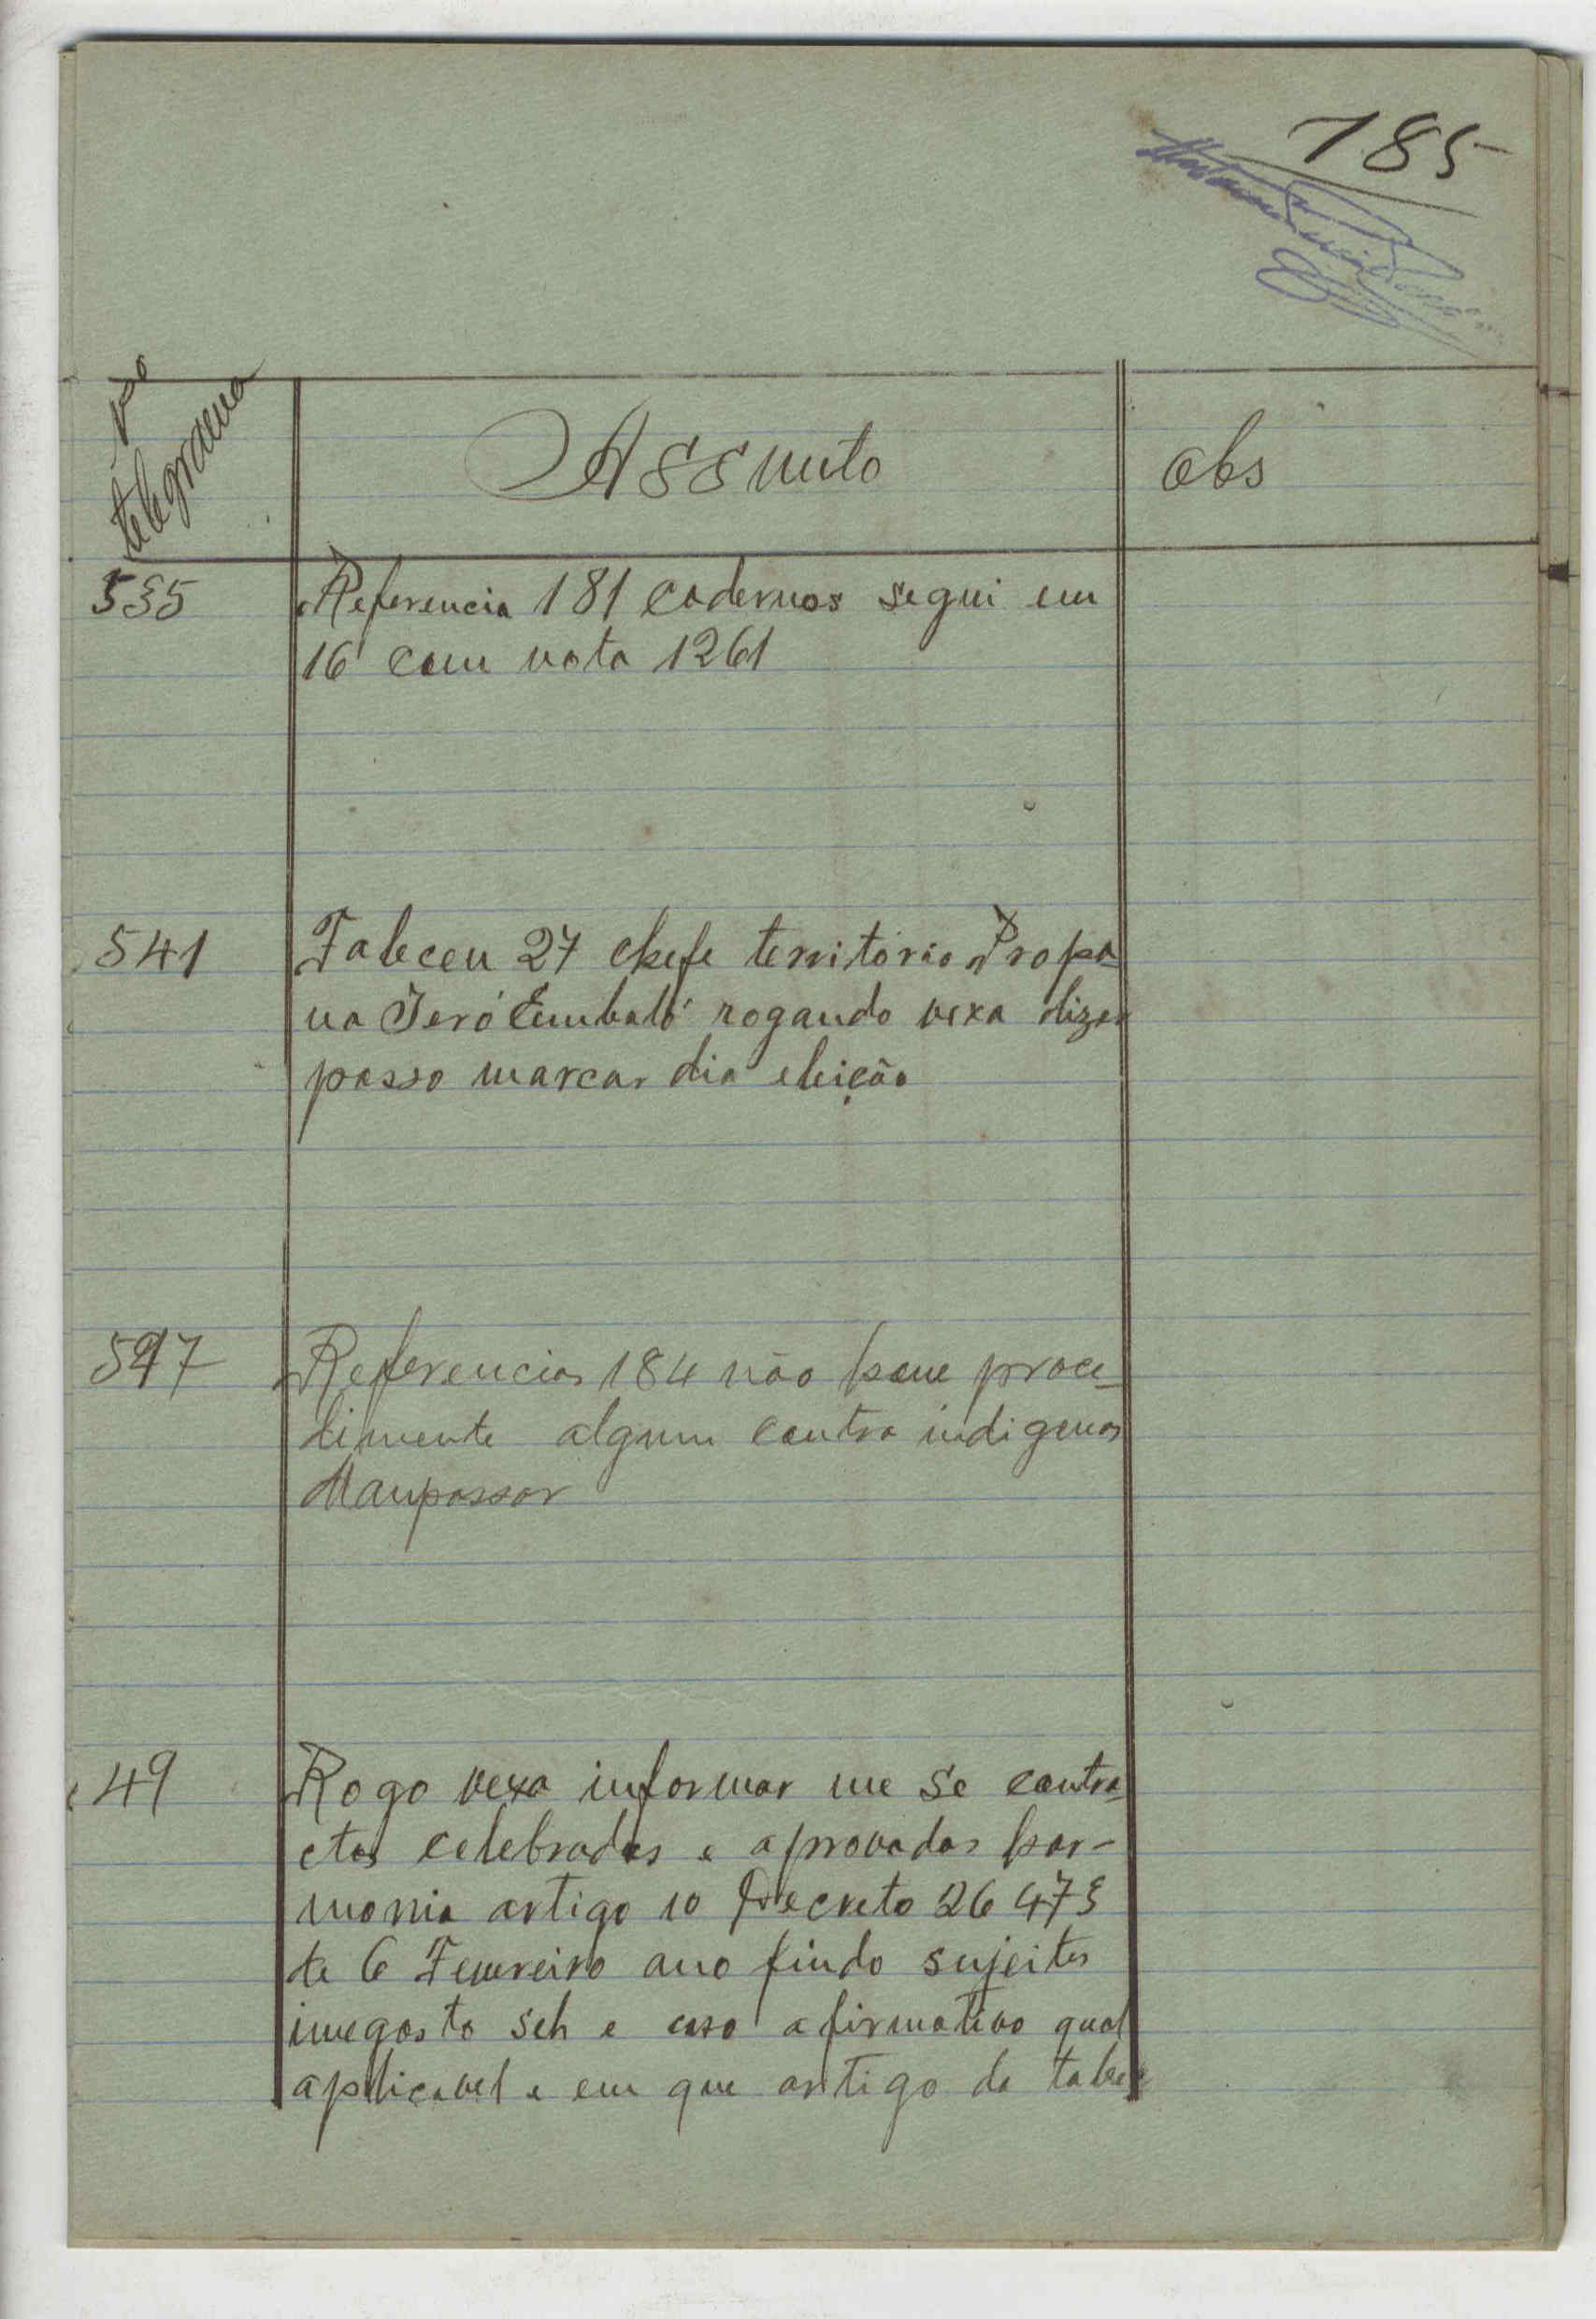 185
Nº
telegrama
Assunto
Obs
535
Referencia 181 cadernos segui em
16 com nota 1261
541
Faleceu 27 chefe território Propa
na Jeró Embaló rogando vexa dizer
posso marcar dia eleição
547
Referencia 184 não houve proce-
dimento algum contra indigenas
Maupassar
49
Rogo vexa informar me se contra
ctos celebrados e aprovados har-
monia artigo 10 Decreto 26 473
de 6 Fevereiro ano findo sujeitos
imposto selo e caso afirmativo qual
aplicavel e em que artigo da tabela